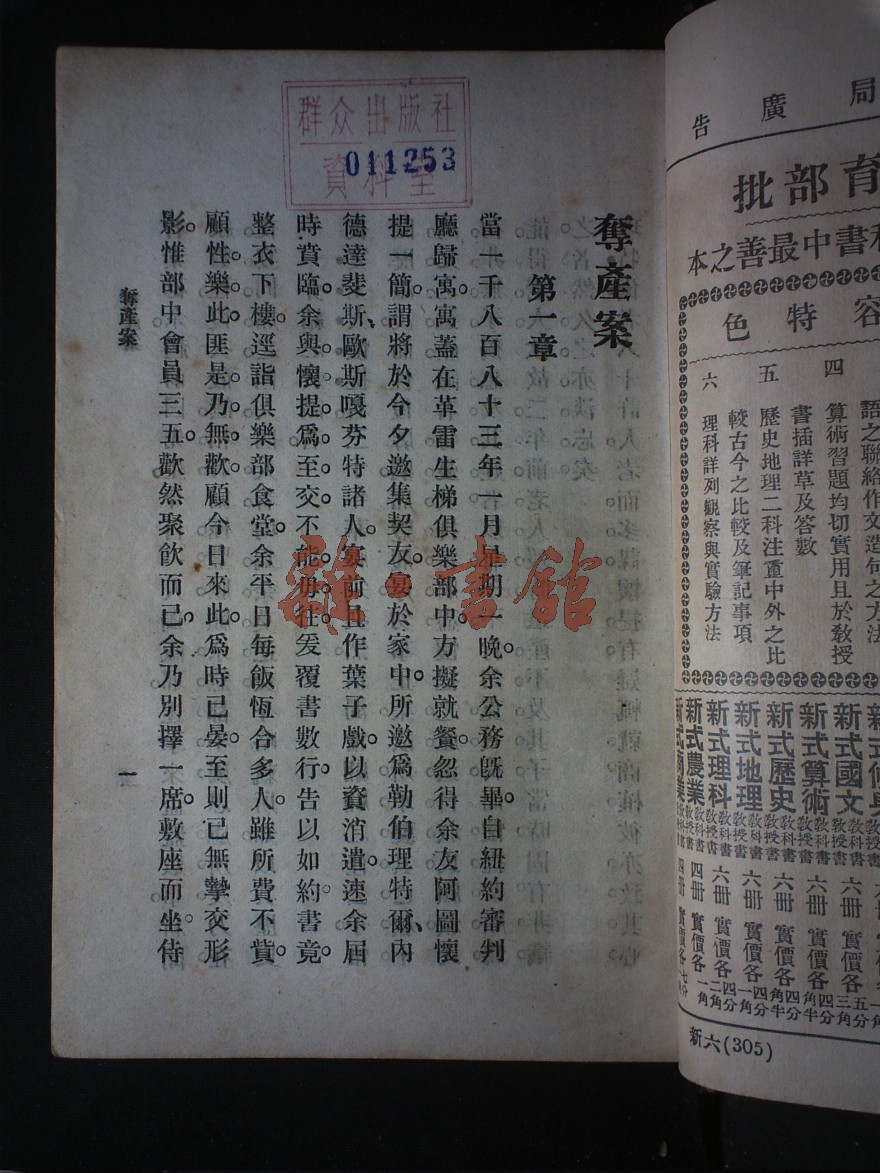 局廣告
育部批
科書中最善之本
容特色
四
語之聯絡作文造句之方法
算術習題均切實用且於教授
書插詳草及答數
五
歷史地理二科注重中外之比
較古今之比較及筆記事項
六
理科詳列觀察與實驗方法
新式修身
新式國文教科書教授書六冊實價各三角五分
新式算術教科書教授書六冊實價各四角半分
新式歷史教科書教授書六冊實價各四角半分
新式地理教科書教授書六冊實價各一角四分
新式理科教科書教授書六冊實價各二角四分
新式農業教科書教授書四冊實價各一角
新六(305)
群众出版社
資料室
011253
奪產案
第一章
當一千八百八十三年一月星期一晚。余公務既畢。自紐約審判
廳歸寓。寓蓋在革雷生梯俱樂部中。方擬就餐。忽得余友阿圖懷
提一簡。謂將於今夕邀集契友。宴於家中。所邀爲勒伯理特爾、內
德達斐斯、歐斯嘎芬特諸人。宴前且作葉子戲。以資消遣。速余屆
時賁臨。余與懷提。爲至交。不能毋往。爰覆書數行。告以如約。書竟。
整衣下樓。逕詣俱樂部食堂。余平日每飯恆合多人。雖所費不貲。
顧性。樂此。匪是。乃無歡。顧今日來此。爲時已晏。至則已無摯交形
影。惟部中會員三五。歡然聚飲而已。余乃別擇一席。敷座而坐。侍
奪產案
一
雜·書館